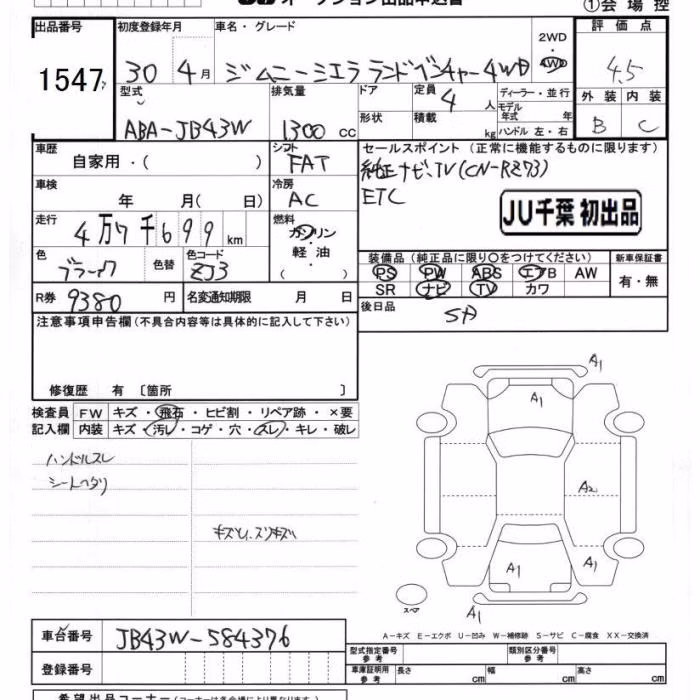 オークション出品申込書 ①会場控
出品番号 初度登録年月 車名・グレード 2WD 評価点
1547 30年4月 ジムニーシエラ ランドベンチャー 4WD 4WD 4.5
型式 排気量 ドア 定員 4人 ディーラー・並行 外装 内装
ABA-JB43W 1300cc 形状 積載 kg モデル年式 年 ハンドル 左・右 B C
車歴 シフト セールスポイント(正常に機能するものに限ります)
自家用・( ) FAT 純正ナビ、TV(CN-RZ73)
車検 冷房 ETC
年 月( 日) AC JU千葉 初出品
走行 燃料
4万7千699km ガソリン・軽油・( )
色 色替 色コード 装備品(純正品に限り○をつけてください) 新車保証書
ブラック ZJ3 PS PW ABS エアB AW 有・無
R券 9380円 名変通知期限 月 日 SR ナビ TV カワ
注意事項申告欄(不具合内容等は具体的に記入して下さい) 後日品
SP
修復歴 有 〔箇所 〕
検査員 FW キズ・飛石・ヒビ割・リペア跡・×要
記入欄 内装 キズ・汚レ・コゲ・穴・スレ・キレ・破レ
ハンドルスレ
シートヘタリ
A1
A1
A2
A1 A1
スペア A1
A-キズ E-エクボ U-凹み W-補修跡 S-サビ C-腐食 XX-交換済
車台番号 JB43W-584376
型式指定番号 参考 類別区分番号 参考
登録番号 車庫証明用 参考 長さ cm 幅 cm 高さ cm
希望出品コーナー